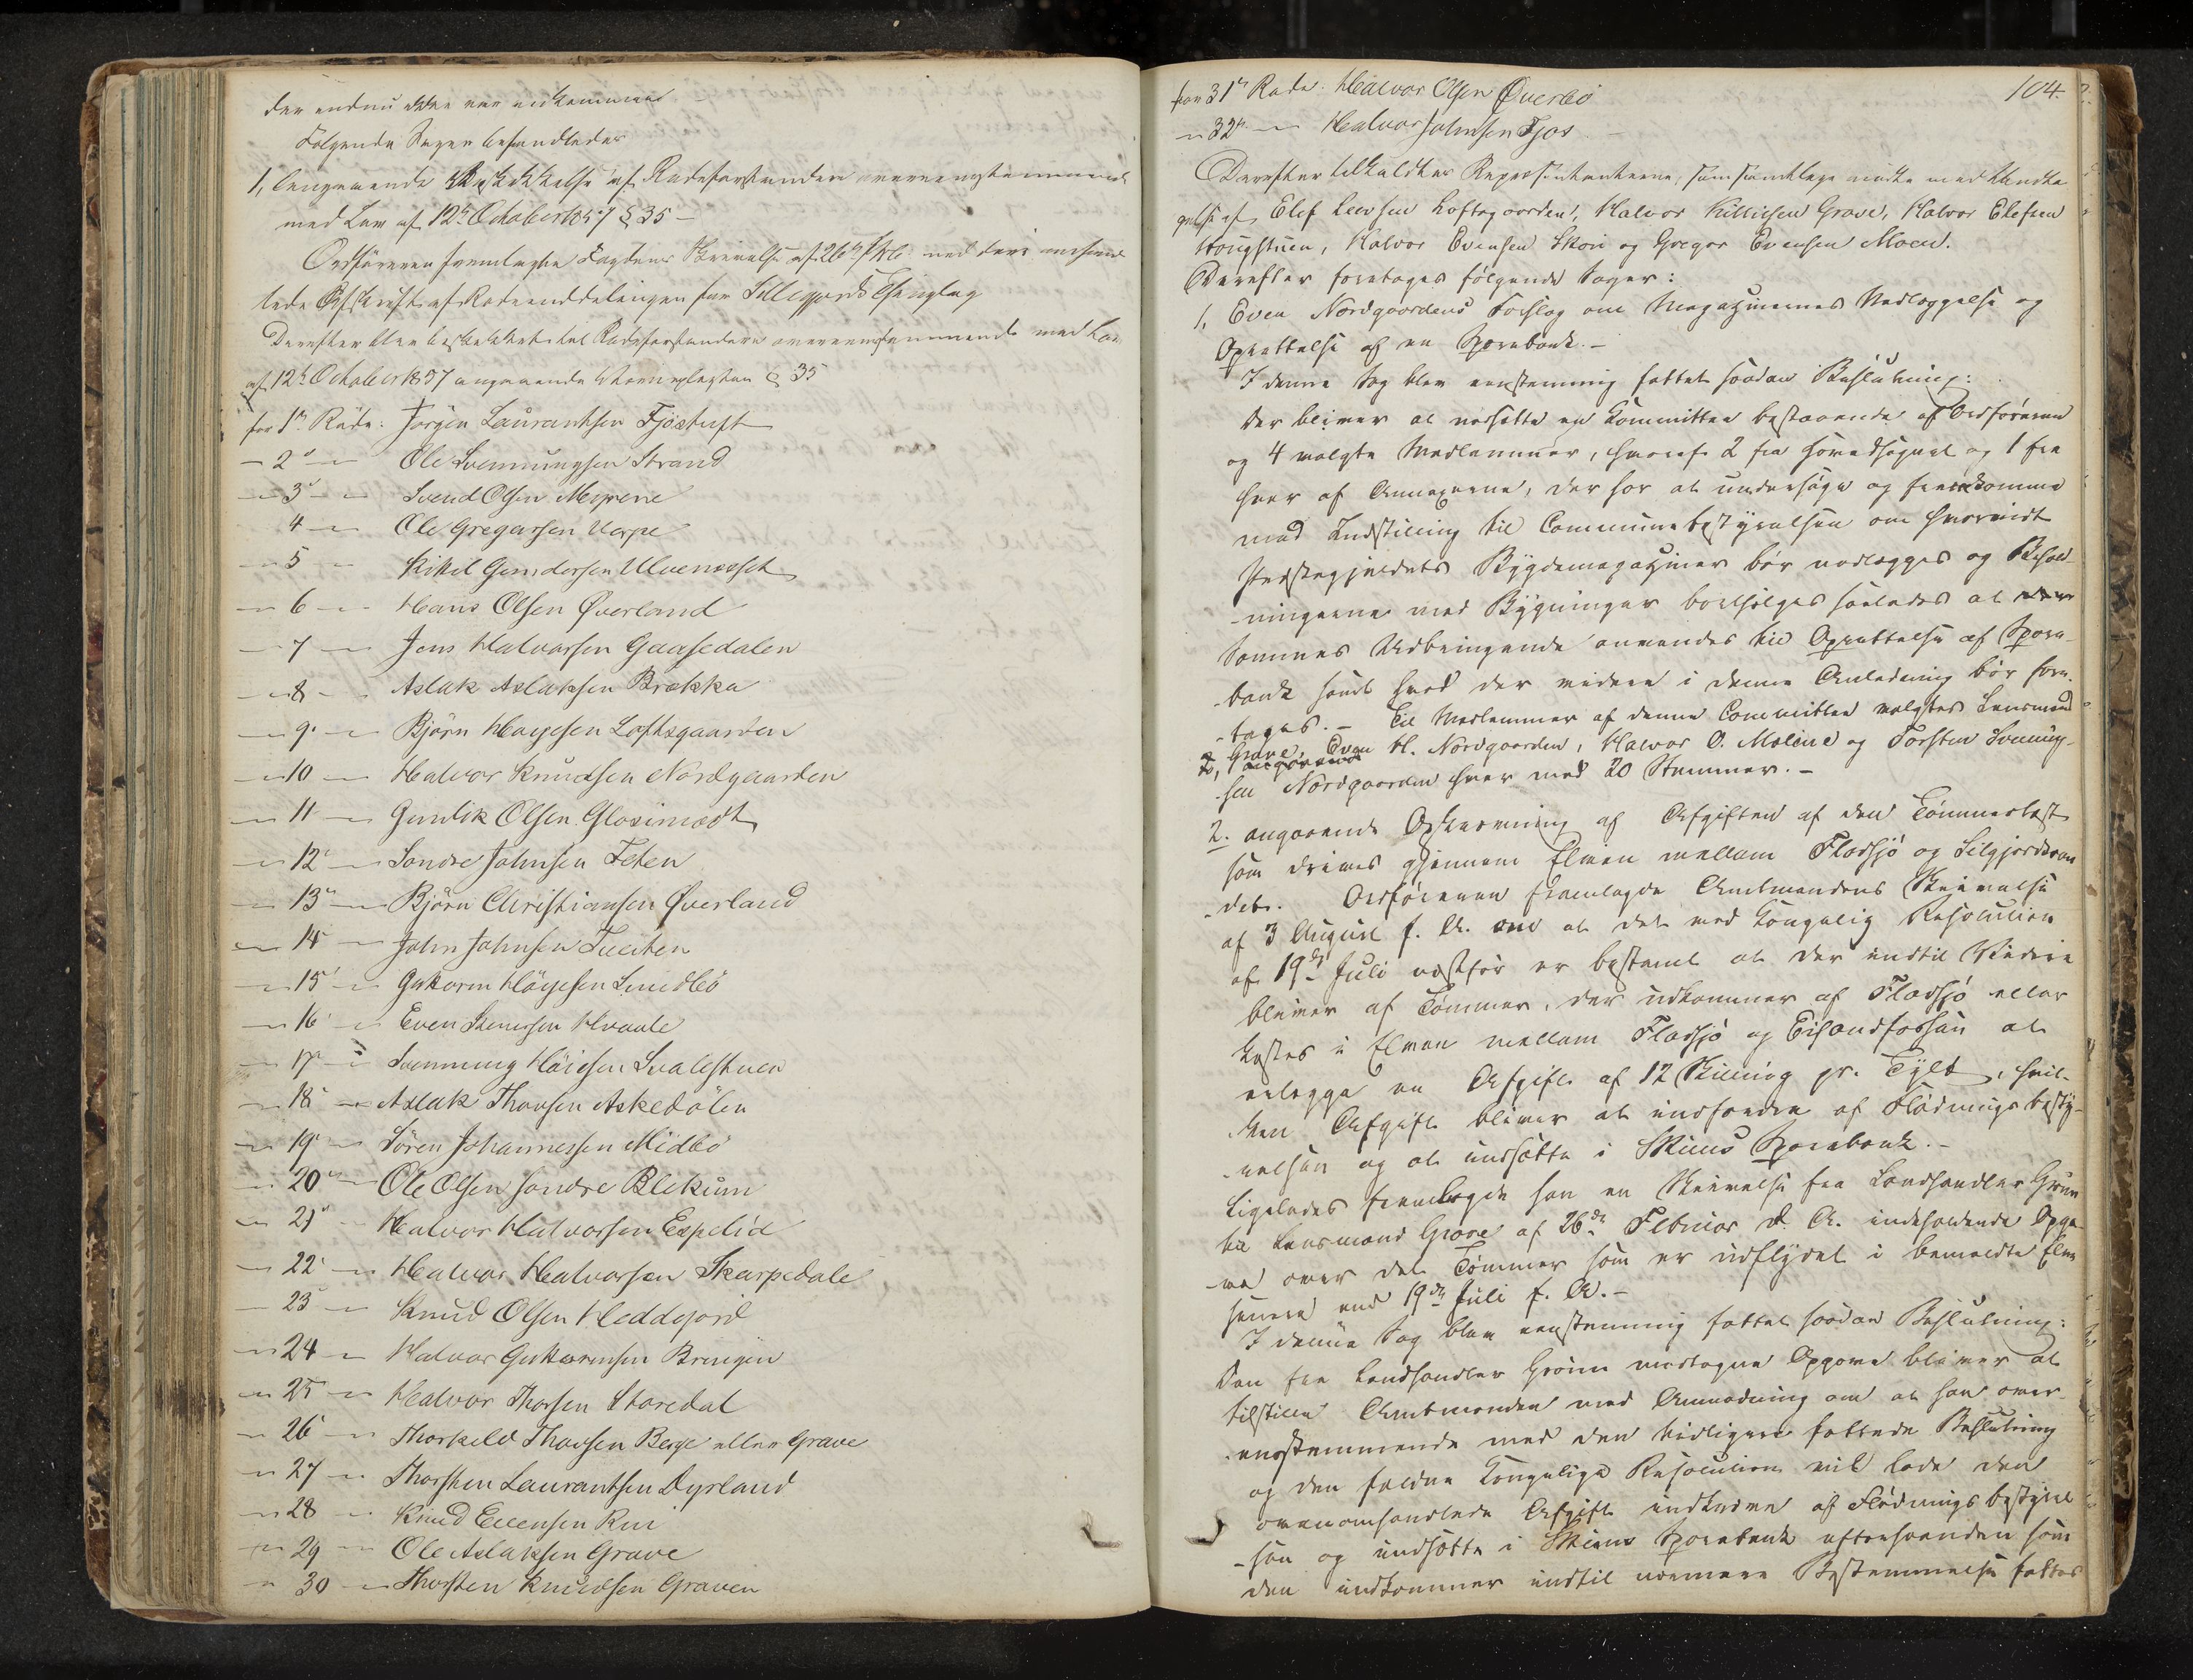 der endnu ikke var ankommen
Følgende Sager behandledes
1, angaaende Beskikkelse af Rodeforstandere overensstemmende
med Lov af 12te October 1857 § 35 –
Ordføreren fremlagde Fogdens Skrivelse af 26de med deri
Afskrift af Rodeinddelingen for Silljords Thinglag
Derefter blev beskikket til Rodeforstandere overensstemmende med Lov
af 12te October 1857 angaaende Værnepligten § 35
for 1ste Rode: Jörgen Laurantsen Fjöstuft
– 2 – Ole Svennungsen Strand
– 3 – Svend Olsen Moprene
4 – Ole Gregarsen Uorpe
– 5 – Kikel Gundersen Ulvenæsset
– 6 – Hans Olsen Øverland
– 7 – Jens Halvorsen Gaasedalen
– 8 – Aslak Aslaksen Brække
– 9 – Björn Hoyesen Loftsgaarden
– 10 – Halvor Knudsen Nordgaarden
– 11 – Gunlik Olsen Glosimodt
– 12 – Sondre Johnsen Feten
– 13 – Björn Christiansen Øverland
– 14 – John Johnsen Tveiten
– 15 – Guttorm Höyesen Smedbö
– 16 – Even Stenersen Hvaale
– 17 – Svennung Höiesen Svalestuen
– 18 – Aslak Thorsen Askedalen
– 19 – Sören Johannessen Midbö
– 20 – Ole Olsen søndre Blekum
– 21 – Halvor Halvorsen Espelid
– 22 – Halvor Halvorsen Skarpedale
– 23 – Knud Olsen Heddejord
– 24 – Halvor Guttormsen Bringen
– 25 – Halvor Thorsen Storedal
– 26 – Thorkild Thorsen Berge eller Grave
– 27 – Thorsten Laurantsen Dyrland
– 28 – Knud Evensen Rui
– 29 – Ole Aslaksen Grave
– 30 – Thorsten Knudsen Graven
104.
for 31te Rode: Halvor Olsen Øverbö
– 32te – Halvor Johnsen Tjos –
Derefter tilkaldtes Repræsentanterne, som samtlige mødte med Undta
gelse af Elef Leevsen Loftsgaarden, Halvor Kittilsen Grave, Halvor Elefsen
Haugstuen, Halvor Evensen Skori og Gregar Evensen Moen.
Derefter foretoges følgende Sager:
1, Even Nordgaardens Forslag om Magazinernes Nedlæggelse og
Oprettelse af en Sparebank. –
I denne Sag blev eenstemmig fattet saadan Beslutning:
Der bliver at nedsætte en Committee bestaaende af Ordføreren
og 4 valgte Medlemmer, hvoraf 2 fra Hovedsognet og 1 fra
hver af Annexerne, der har at undersøge og fremkomme
med Indstilling til Communebestyrelsen om hvorvidt
Præstegjeldets Bygdemagaziner bør nedlægges og Behold-
ningerne med Bygninger bortsælges saaledes at
Sammes Udbringende anvendes til Oprettelse af Spare-
bank samt hvad der videre i denne Anledning bør fore-
tages. – Til Medlemmer af denne Committee valgtes Lensmand
Grave, Even H. Nordgaarden, Halvor O. Moline og Torsten Svennung-
2, angaaende
sen Nordgaarden hver med 20 Stemmer. –
2. angaaende Opkrævning af Afgiften af den Tømmerlast
som drives gjennem Elven mellem Fladsjö og Seljordsvan
det. Ordføreren fremlagde Amtmandens Skrivelse
af 3 August f. A. om at det ved Kongelig Resolution
af 19de Juli næstfør er bestemt at der indtil Videre
bliver af Tømmer, der udkommer af Fladsjö eller
kastes i Elven mellem Fladsjö og at
erlægge en Afgift af 12 Skilling pr. Tylt, hvil-
ken Afgift bliver at indfordre af Flødningsbesty-
relsen og at indsætte i Skiens Sparebank. –
Ligeledes fremlagde han en Skrivelse fra Landhandler Grim
til Lensmand Grave af 26de Februar d. A. indeholdende Opga
ve over det Tømmer som er udflydet i bemeldte Elv
senere end 19de Juli f. A. –
I denne Sag blev eenstemmig fattet saadan Beslutning:
Den fra Landhandler Grim modtagne Opgave bliver at
tilstille Amtmanden med Anmodning om at han over-
ensstemmende med den tidligere fattede Beslutning
og den faldne Kongelige Resolution vil lade den
ovenomhandlede Afgift indkræve af Flødningsbestyrel
sen og indsætte i Skiens Sparebank efterhvert som
den indkommer indtil nærmere Bestemmelse fattes